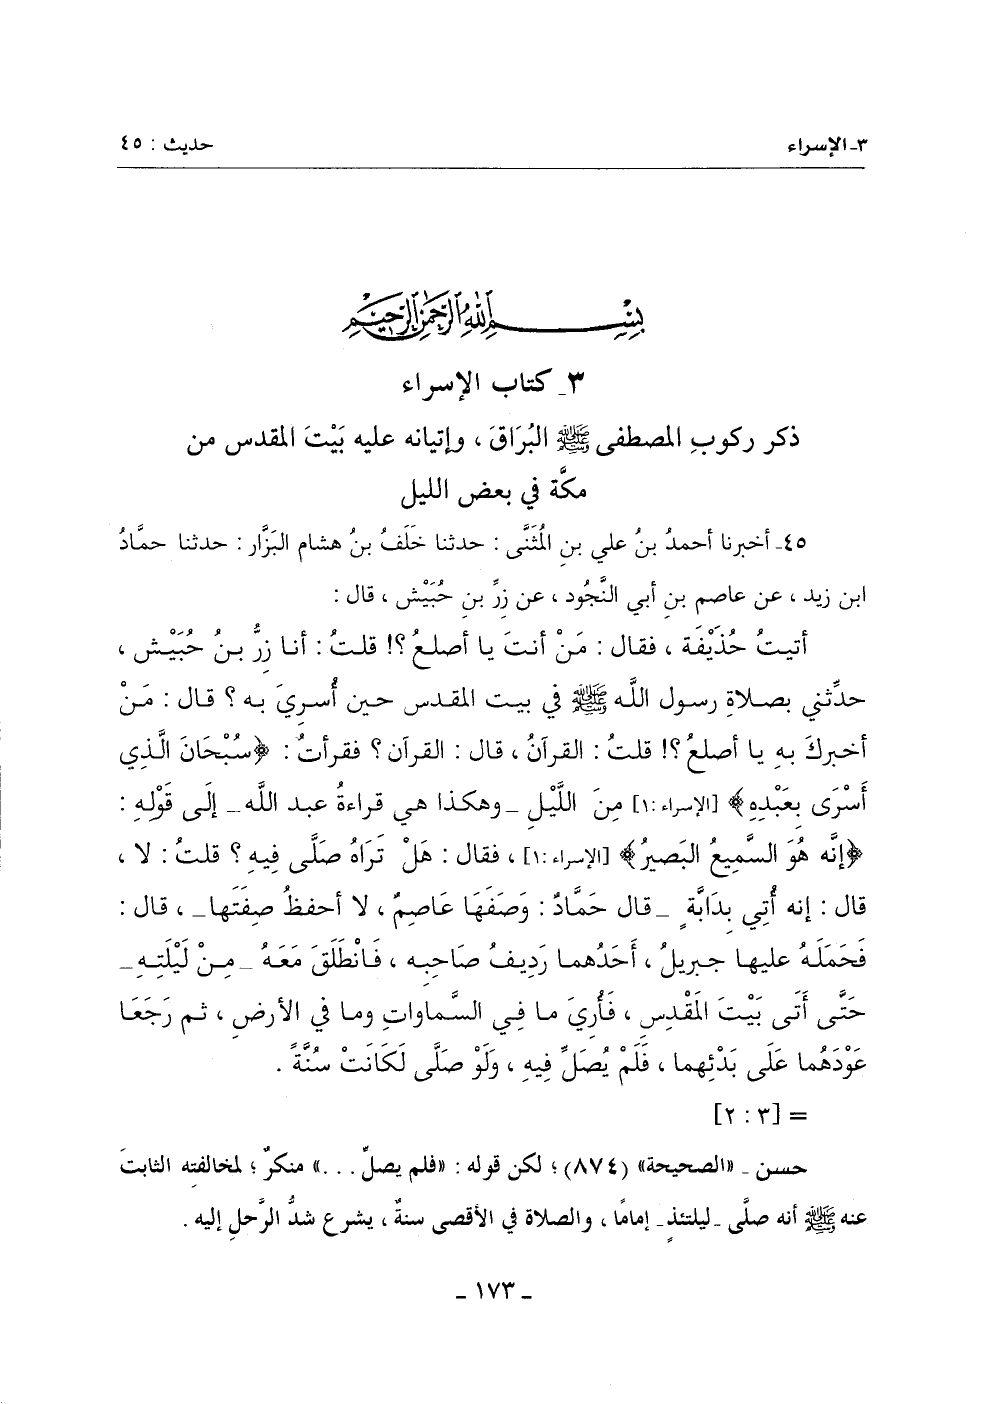 ٣ـ الإسراء حديث : ٤٥
بِسْمِ اللَّهِ الرَّحْمَنِ الرَّحِيمِ
٣ـ كتاب الإسراء
ذكر ركوبِ المصطفى ﷺ البُرَاقَ ، وإتيانه عليه بَيْتَ المقدس من
مكَّة في بعض الليل
٤٥ـ أخبرنا أحمدُ بنُ علي بنِ المُثَنَّى : حدثنا خَلَفُ بنُ هشام البَزَّار : حدثنا حمَّادُ
ابن زيد ، عن عاصم بن أبي النَّجُود ، عن زرِّ بنِ حُبَيْش ، قال :
أتيتُ حُذَيْفَة ، فقال : مَنْ أنتَ يا أصلعُ؟! قلتُ : أنا زِرُّ بنُ حُبَيْش ،
حدِّثني بصلاةِ رسول اللَّه ﷺ في بيت المقدس حين أُسريَ به ؟ قال : مَنْ
أخبركَ بهِ يا أصلعُ؟! قلتُ : القرآنُ ، قال : القرآن ؟ فقرأتُ : ﴿سُبْحَانَ الَّذِي
أَسْرَى بِعَبْدِهِ﴾ [الإسراء :١] مِنَ اللَّيْلِ ـ وهكذا هي قراءةُ عبد اللَّه ـ إلَى قَوْلِهِ :
﴿إنَّه هُوَ السَّمِيعُ البَصيرُ﴾ [الإسراء :١] ، فقال : هَلْ تَرَاهُ صَلَّى فِيهِ ؟ قلتُ : لا ،
قال : إنه أُتِي بِدَابَّةٍ ـ قال حَمَّادٌ : وَصَفَهَا عَاصِمٌ ، لا أحفظُ صِفَتَها ـ ، قال :
فَحَمَلَهُ عليها جبريلُ ، أَحَدُهما رَدِيفُ صَاحِبِهِ ، فَانْطَلَقَ مَعَهُ ـ مِنْ لَيْلَتِهِ ـ
حَتَّى أَتَى بَيْتَ المَقْدِسِ ، فَأُرِيَ مَا فِي السَّماواتِ وما في الأرضِ ، ثم رَجَعَا
عَوْدَهُما عَلَى بَدْئِهما ، فَلَمْ يُصَلِّ فِيهِ ، وَلَوْ صَلَّى لَكَانَتْ سُنَّةً .
= [٣ : ٢]
حسن ـ «الصحيحة» (٨٧٤) ؛ لكن قوله : «فلم يصلِّ . . .» منكرٌ ؛ لمخالفته الثابتَ
عنه ﷺ أنه صلَّى ـ ليلتئذٍ ـ إمامًا ، والصلاة في الأقصى سنةٌ ، يشرع شدُّ الرَّحلِ إليه .
ـ ١٧٣ ـ